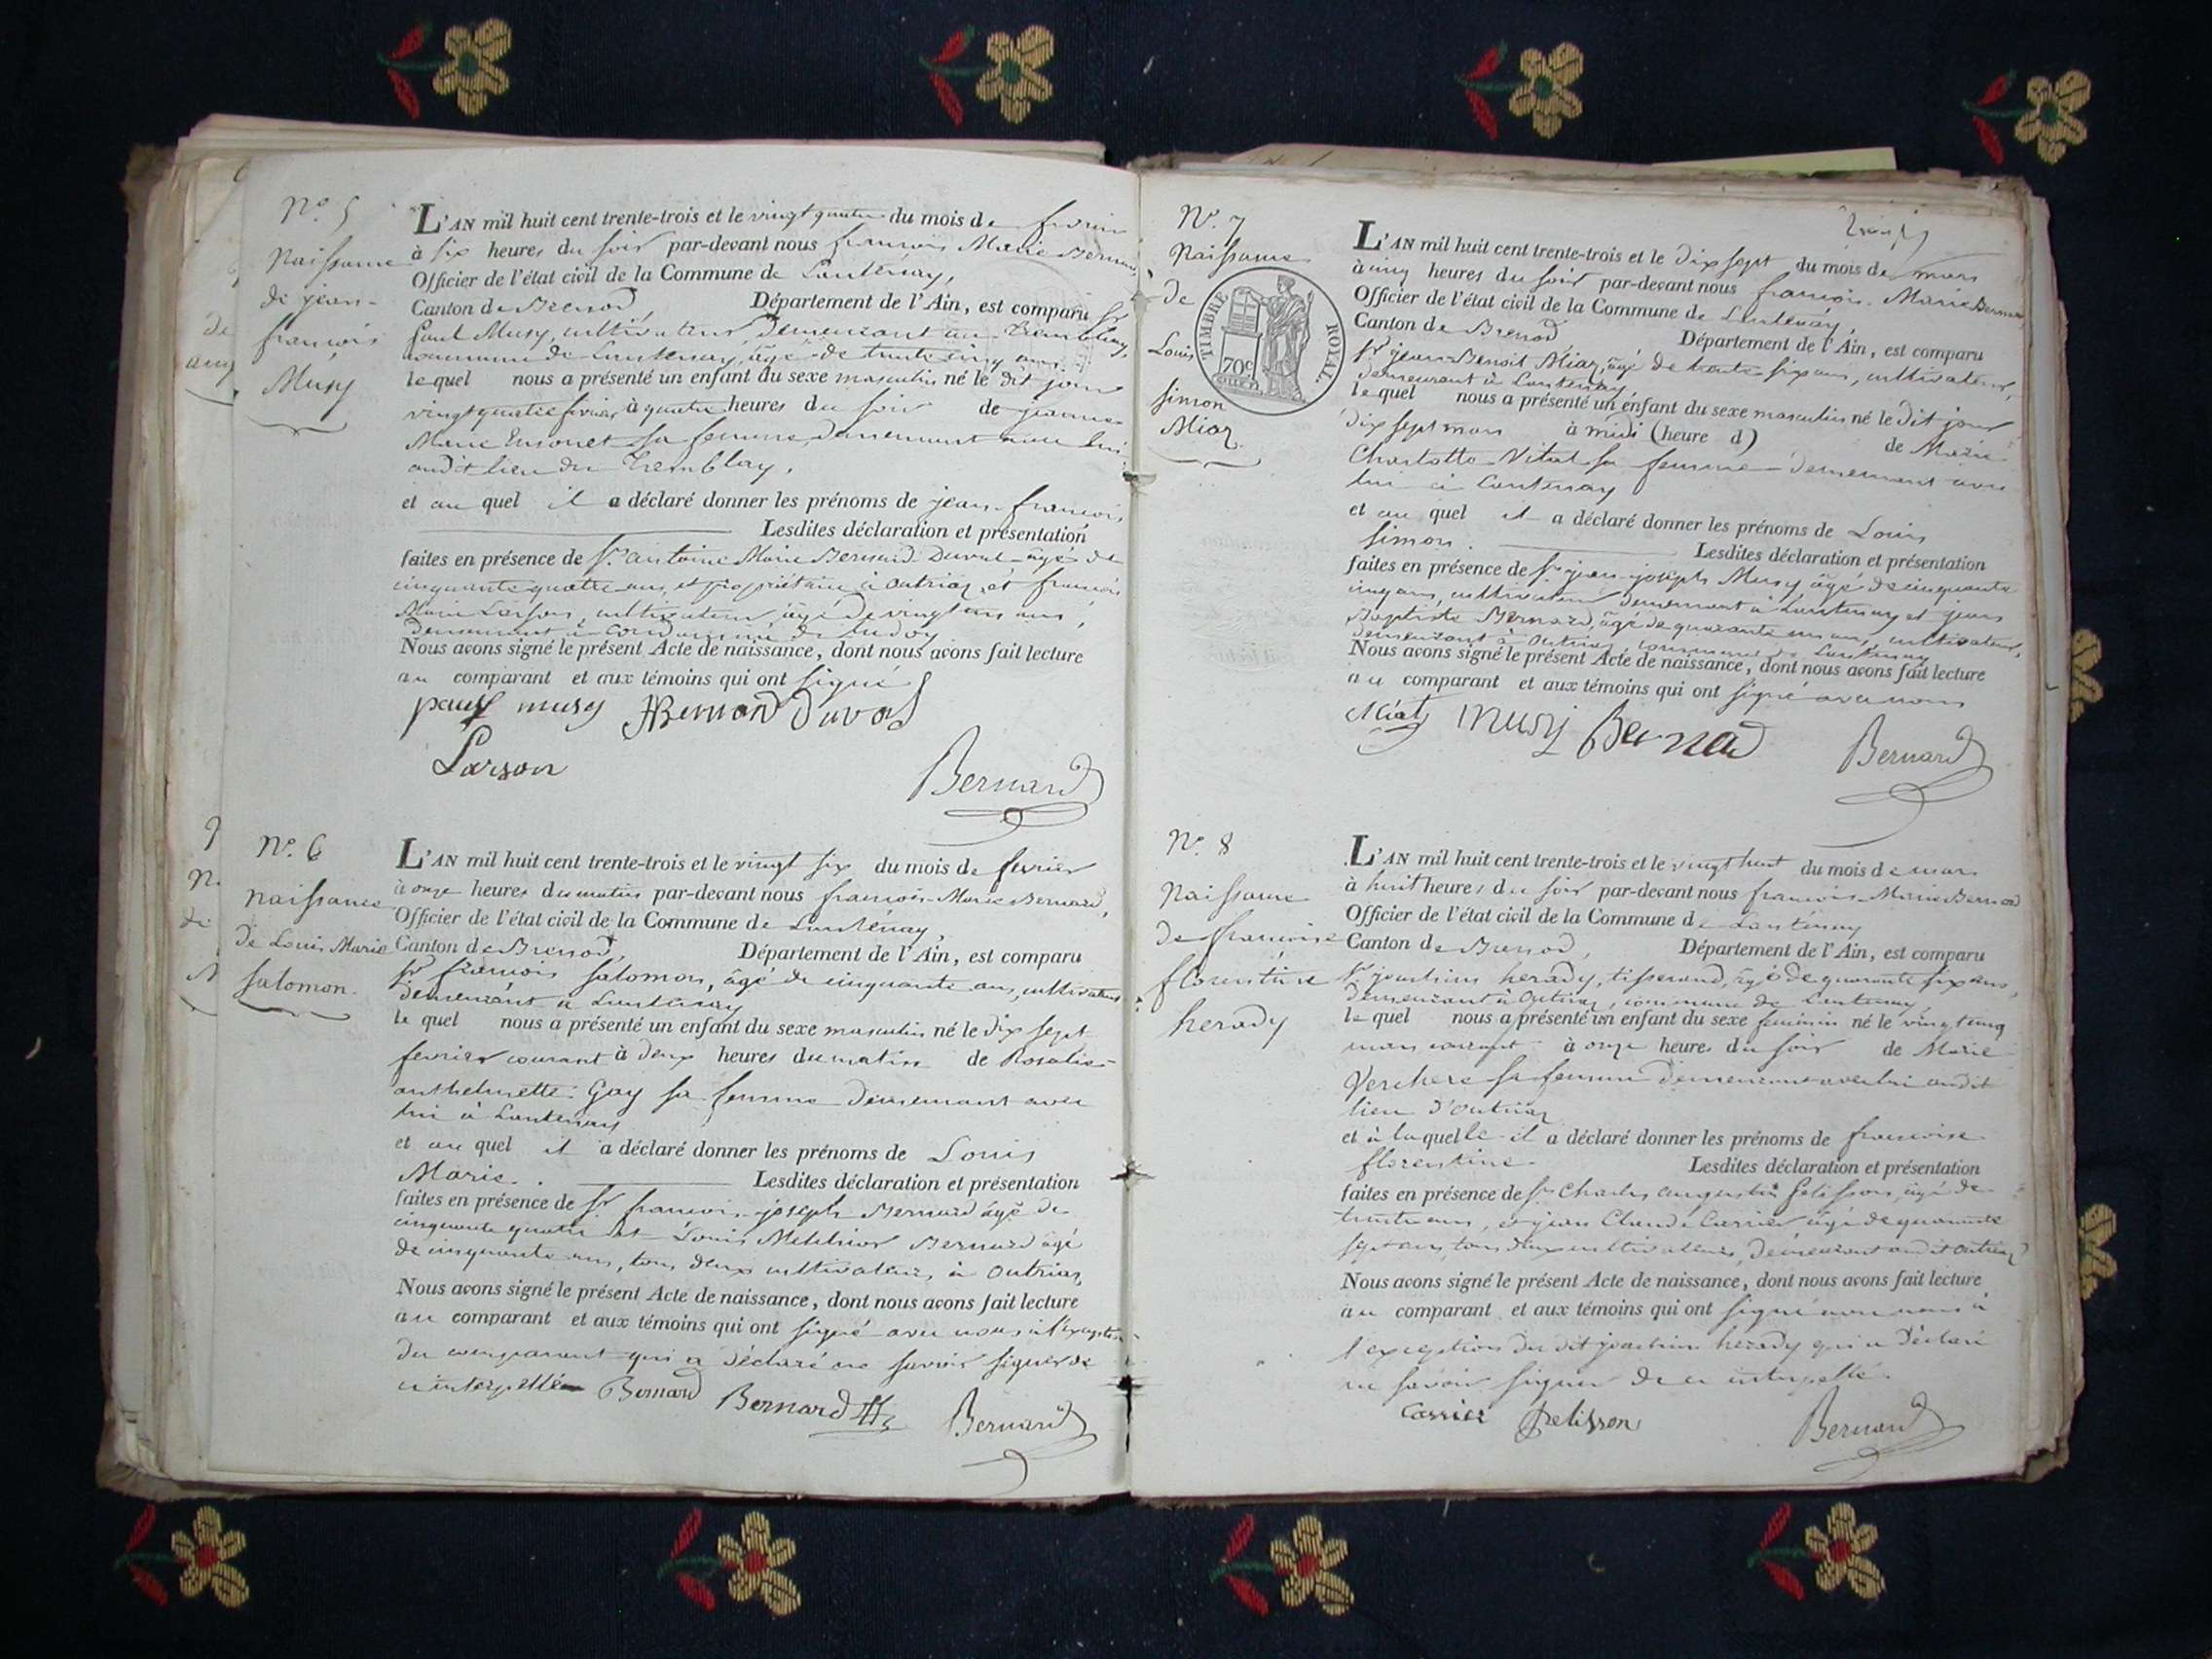 N.º 5
Naissance
de jean-
francois
Musy
L'AN mil huit cent trente-trois et le vingt quatre du mois de fevrier
à six heures du soir par-devant nous francois Marie Bernard
Officier de l'état civil de la Commune de Lantenay,
Canton de Brenod, Département de l'Ain, est comparu Sr
Paul Musy, cultivateur, demeurant au Tremblay,
commune de Lantenay, âgé de trente cinq ans
lequel nous a présenté un enfant du sexe masculin né le dit jour
vingt quatre fevrier à quatre heures du soir de jeanne-
Marie sa femme, demeurant avec lui
audit lieu du Tremblay.
et au quel il a déclaré donner les prénoms de jean-francois
Lesdites déclaration et présentation
faites en présence de Sr. antoine Marie Bernard Duval âgé de
cinquante quatre ans, et propriétaire à Outriaz, et francois
Marie Larson, cultivateur, âgé de vingt ans,
demeurant à
Nous avons signé le présent Acte de naissance, dont nous avons fait lecture
au comparant et aux témoins qui ont signé
paul musy Bernard Duval
Larson
Bernard
N.º 6
naissance
de Louis Marie
salomon.
L'AN mil huit cent trente-trois et le vingt six du mois de fevrier
à onze heures du matin par-devant nous francois-Marie Bernard,
Officier de l'état civil de la Commune de Lantenay,
Canton de Brenod, Département de l'Ain, est comparu
Sr francois salomon, âgé de cinquante ans, cultivateur
demeurant à Lantenay
le quel nous a présenté un enfant du sexe masculin né le dix sept
fevrier courant à deux heures du matin de Rosalie-
anthelmette Gay sa femme demeurant avec
lui à Lantenay
et au quel il a déclaré donner les prénoms de Louis
Marie. Lesdites déclaration et présentation
faites en présence de Sr francois-joseph Bernard âgé de
cinquante quatre et Louis Melchior Bernard âgé
de cinquante ans, tous deux cultivateurs à Outriaz,
Nous avons signé le présent Acte de naissance, dont nous avons fait lecture
au comparant et aux témoins qui ont signé avec nous à l'exception
du comparant qui a déclaré ne savoir signer de
ce interpellé Bernard Bernard Bernard
N.º 7
Naissance
de
Louis
simon
Miaz
TIMBRE ROYAL
70c
L'AN mil huit cent trente-trois et le dix sept du mois de mars
à cinq heures du soir par-devant nous francois-Marie Bernard,
Officier de l'état civil de la Commune de Lantenay,
Canton de Brenod, Département de l'Ain, est comparu
Sr jean-Benoit Miaz, âgé de trente six ans, cultivateur,
demeurant à Lantenay
lequel nous a présenté un enfant du sexe masculin né le dit jour
dix sept mars à midi (heure d) de Marie
Charlotte Vital sa femme demeurant avec
lui à Lantenay
et au quel il a déclaré donner les prénoms de Louis
simon. Lesdites déclaration et présentation
faites en présence de Sr jean-joseph Musy âgé de cinquante
cinq ans, cultivateur demeurant à Lantenay et jean
Baptiste Bernard, âgé de quarante ans, cultivateur,
demeurant à Outriaz, commune de Lantenay
Nous avons signé le présent Acte de naissance, dont nous avons fait lecture
au comparant et aux témoins qui ont signé avec nous
Miaz Musy Bernad Bernard
N.º 8
Naissance
de francoise
florentine
herady
L'AN mil huit cent trente-trois et le vingt huit du mois de mars
à huit heures du soir par-devant nous francois-Marie Bernard
Officier de l'état civil de la Commune de Lantenay
Canton de Brenod, Département de l'Ain, est comparu
Sr joachim herady, tisserand, âgé de quarante six ans,
demeurant à Outriaz, commune de Lantenay
lequel nous a présenté un enfant du sexe feminin né le vingt cinq
mars courant à onze heures du soir de Marie
Verchere sa femme demeurant avec lui audit
lieu d'Outriaz
et à laquelle il a déclaré donner les prénoms de francoise
florentine. Lesdites déclaration et présentation
faites en présence de Sr Charles augustin Pelisson, âgé de
trente ans, et jean Claude Carrier âgé de quarante
sept ans, tous deux cultivateurs, demeurant audit Outriaz
Nous avons signé le présent Acte de naissance, dont nous avons fait lecture
au comparant et aux témoins qui ont signé avec nous à
l'exception du dit joachim herady qui a déclaré
ne savoir signer de ce interpellé.
Carrier Pelisson Bernard